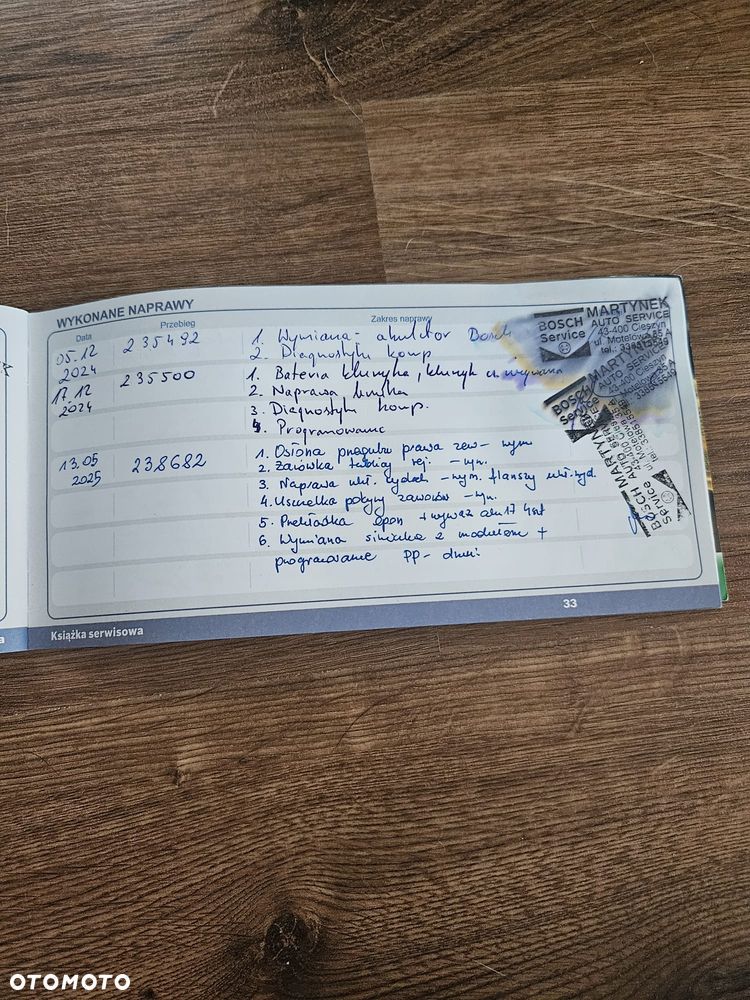 WYKONANE NAPRAWY
Data Przebieg Zakres naprawy
05.12 2024 235492 1. Wymiana - akulator Bosch
2. Diagnostyka komp.
17.12 2024 235500 1. Bateria kluczyka, kluczyk
2. Naprawa
3. Diagnostyka komp.
4. Programowanie
13.05 2025 238682 1. Osłona przegubu prawa zew - wym
2. Żarówka tablicy rej. - wym.
3. Naprawa ukł. wydech - wym. flanszy ukł. wyd.
4. Uszczelka pokrywy zaworów - wym.
5. Przekładka opon + wyważ alu 17 4szt
6. Wymiana z modułem +
programowanie PP - drzwi
BOSCH Service
MARTYNEK
AUTO SERVICE
43-400 Cieszyn
ul. Motelowa 85 A
BOSCH Service
MARTYNEK
AUTO SERVICE
43-400 Cieszyn
BOSCH Service
MARTYNEK
AUTO SERVICE
43-400 Cieszyn
Książka serwisowa
33
OTOMOTO